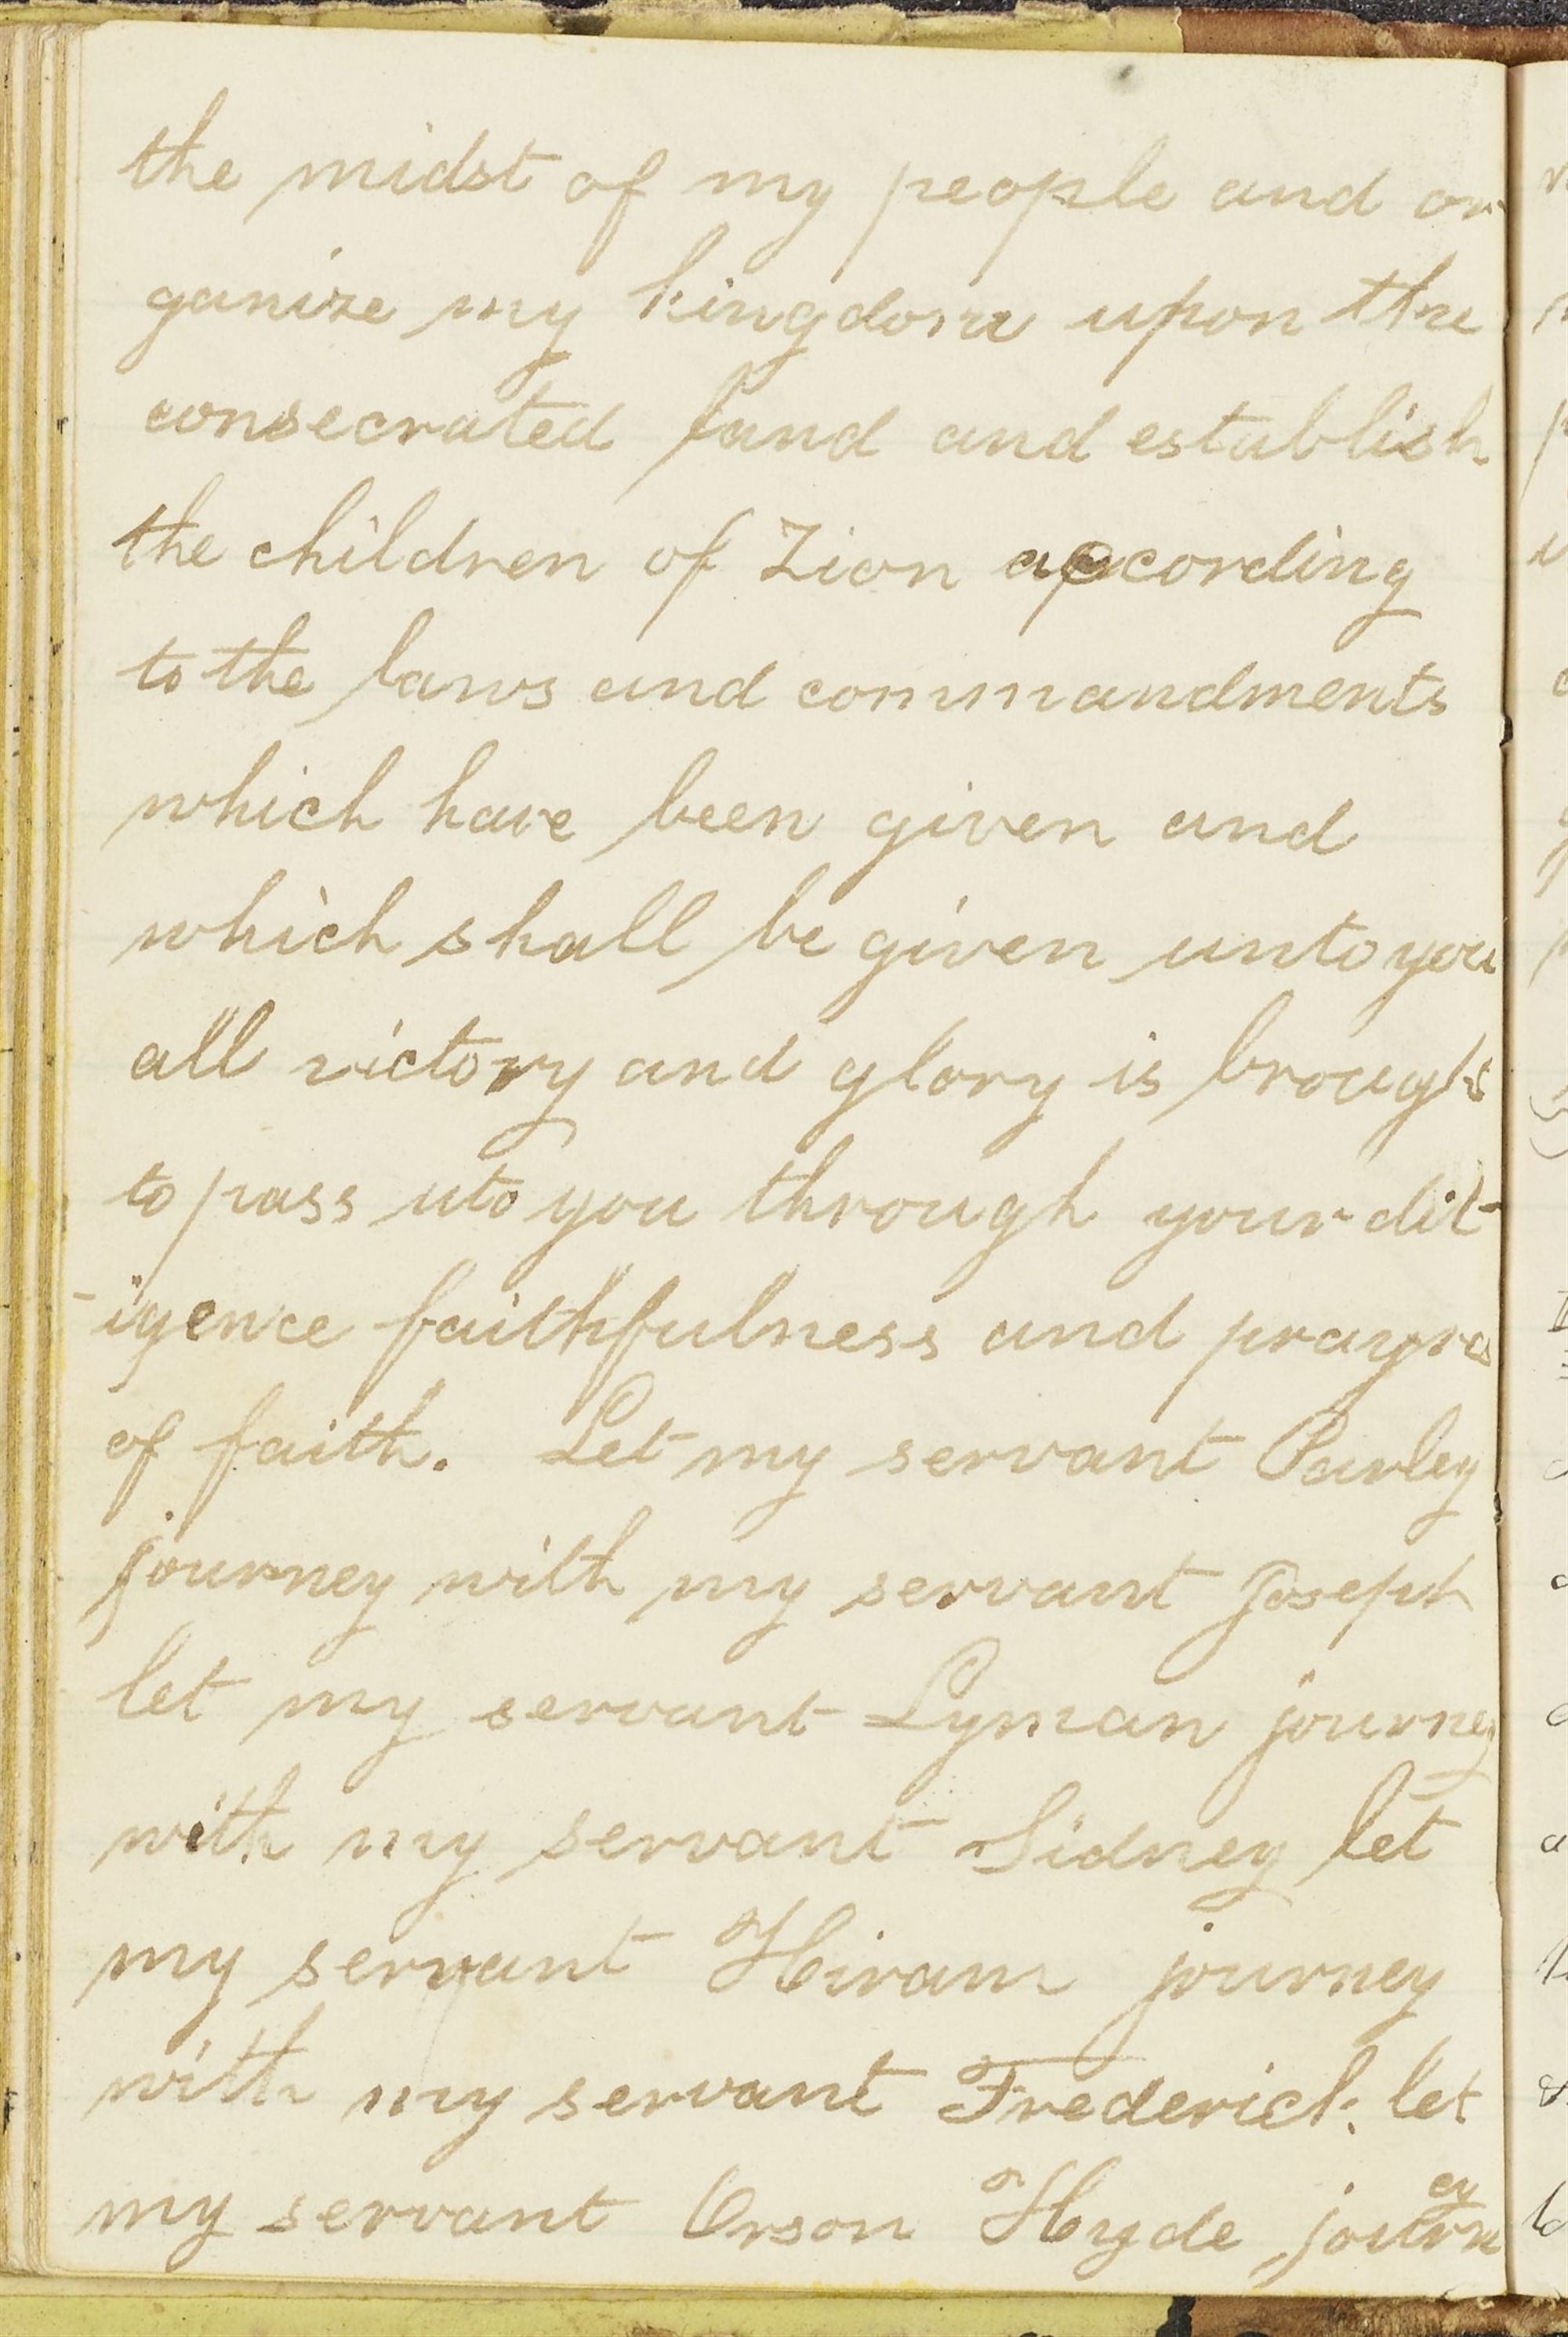 the midst of my people and or
ganize my kingdom upon the
consecrated land and establish
the children of Zion according
to the laws and commandments
which have been given and
which shall be given unto you
all victory and glory is brought
to pass uto you through your dil-
-igence faithfulness and prayrs
of faith. Let my servant Parley
journey with my servant Joseph
let my servant Lyman journey
with my servant Sidney let
my servant Hiram journey
with my servant Frederick let
my servant Orson Hyde journey